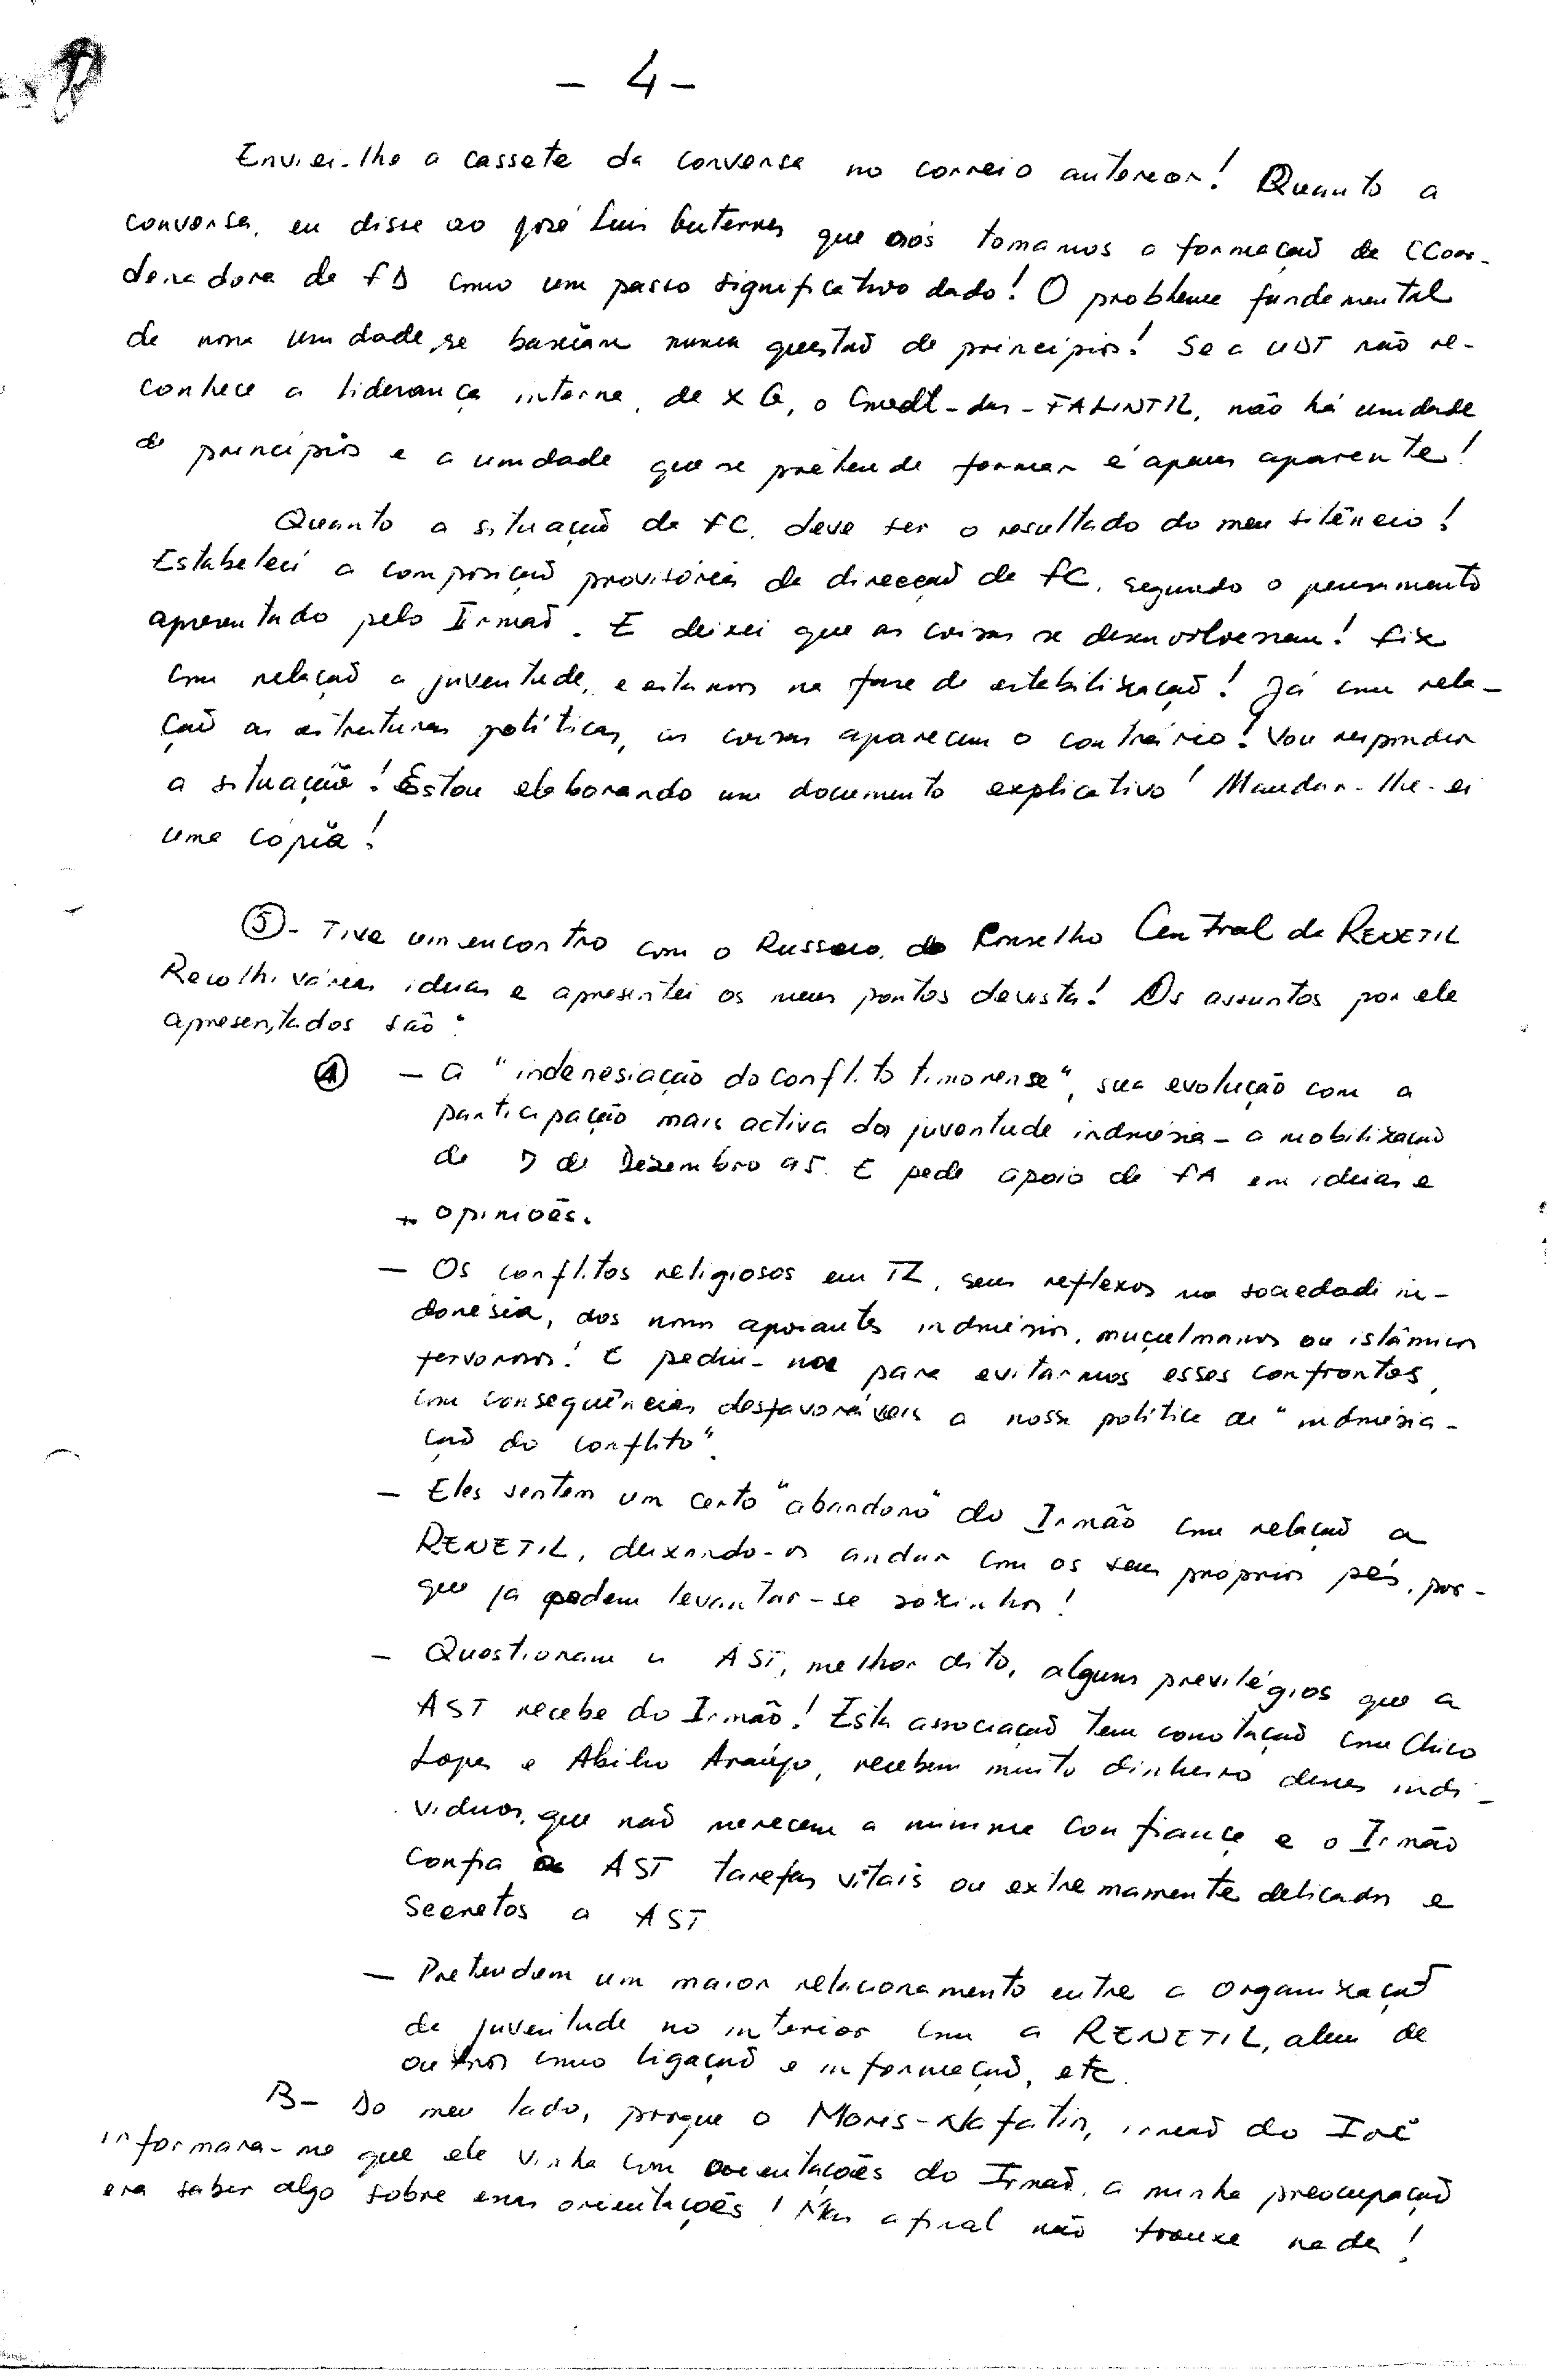 - 4 -
Enviei-lhe a cassete da conversa no correio anterior! Quanto a
conversa, eu disse ao José Luis Guterres que nós tomamos a formação de CCoor-
denadora de FD como um passo significativo dado! O problema fundamental
de uma unidade, se baseiam numa questão de princípios! Se a UDT não re-
conhece a liderança interna, de XG, o Cmdt-das-FALINTIL, não há unidade
de princípios e a unidade que se pretende formar é apenas aparente!
Quanto a situação da FC, deve ser o resultado do meu silêncio!
Estabeleci a composição provisória da direcção da FC, segundo o pensamento
apresentado pelo Irmão. E deixei que as coisas se desenvolvessem! Fixe
com relação a juventude, e estamos na fase de estabilização! Já com rela-
ção as estruturas políticas, as coisas aparecem o contrário! Vou responder
a situação! Estou elaborando um documento explicativo! Mandar-lhe-ei
uma cópia!
5- Tive um encontro com o Russo, do Conselho Central da RENETIL
Recolhi várias ideias e apresentei os meus pontos de vista! Os assuntos por ele
apresentados são:
A - a "indonesiação do conflito timorense", sua evolução com a
participação mais activa da juventude indonésia - a mobilização
de 7 de Dezembro 95. E pede apoio de FA em ideias e
opiniões.
- Os conflitos religiosos em TL, seus reflexos na sociedade in-
donésia, dos nossos apoiantes indonésios, muçulmanos ou islâmicos
fervorosos! E pediu-nos para evitarmos esses confrontos,
com consequências desfavoráveis a nossa política de "indonésia-
ção do conflito".
- Eles sentem um certo "abandono" do Irmão com relação a
RENETIL, deixando-os andar com os seus próprios pés, por-
que já podem levantar-se sozinhos!
- Questionam a AST, melhor dito, alguns previlégios que a
AST recebe do Irmão! Esta associação tem conotação com Chico
Lopes e Abílio Araújo, recebem muito dinheiro desses indi-
viduos, que não merecem a minima confiança e o Irmão
confia a AST tarefas vitais ou extremamente delicadas e
secretos a AST.
- Pretendem um maior relacionamento entre a organização
da juventude no interior com a RENETIL, alem de
outros como ligação e informação, etc.
B- Do meu lado, porque o Moris-Nafatin, irmão do
informara-me que ele vinha com orientações do Irmão, a minha preocupação
era saber algo sobre essas orientações! Mas afinal não trouxe nada!